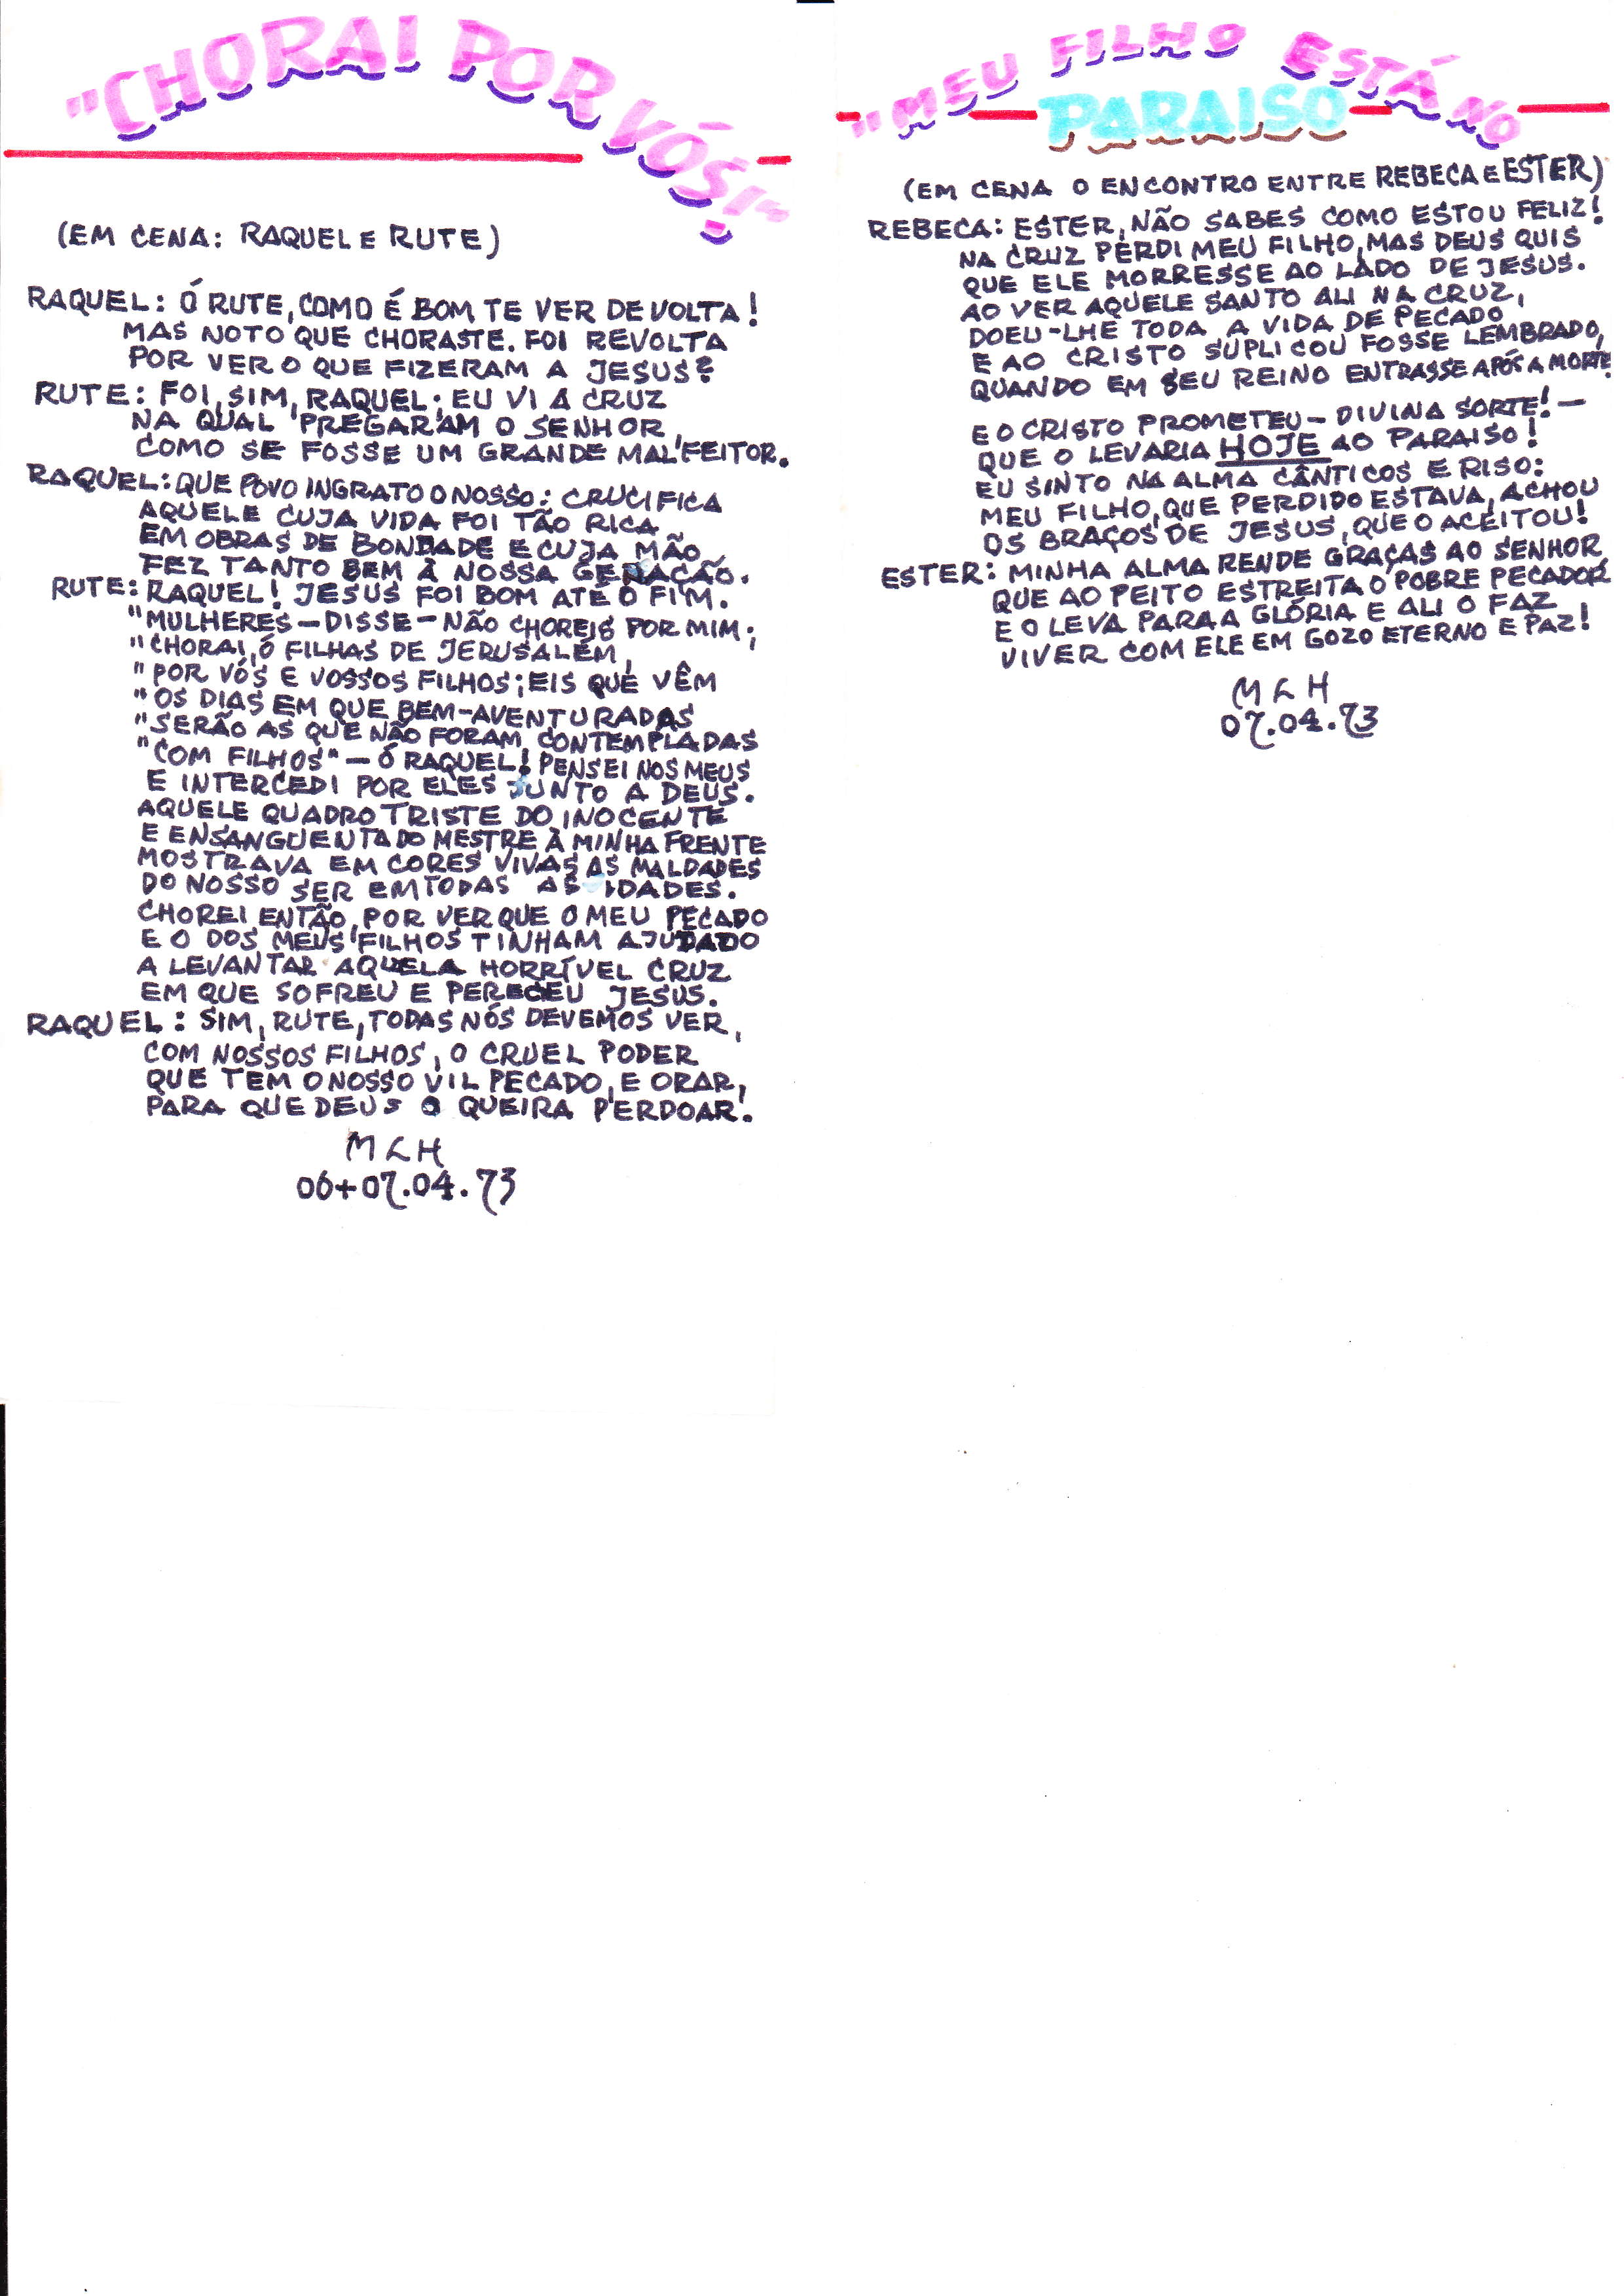 "CHORAI POR VÓS!"
(EM CENA: RAQUEL E RUTE)
RAQUEL: Ó RUTE, COMO É BOM TE VER DE VOLTA!
MAS NOTO QUE CHORASTE. FOI REVOLTA
POR VER O QUE FIZERAM A JESUS?
RUTE: FOI, SIM, RAQUEL; EU VI A CRUZ
NA QUAL PREGARAM O SENHOR,
COMO SE FOSSE UM GRANDE MALFEITOR.
RAQUEL: QUE POVO INGRATO O NOSSO: CRUCIFICA
AQUELE CUJA VIDA FOI TÃO RICA
EM OBRAS DE BONDADE E CUJA MÃO
FEZ TANTO BEM À NOSSA GERAÇÃO.
RUTE: RAQUEL! JESUS FOI BOM ATÉ O FIM.
"MULHERES – DISSE – NÃO CHOREIS POR MIM;
"CHORAI, Ó FILHAS DE JERUSALÉM,
"POR VÓS E VOSSOS FILHOS; EIS QUE VÊM
"OS DIAS EM QUE BEM-AVENTURADAS
"SERÃO AS QUE NÃO FORAM CONTEMPLADAS
"COM FILHOS" – Ó RAQUEL! PENSEI NOS MEUS
E INTERCEDI POR ELES JUNTO A DEUS.
AQUELE QUADRO TRISTE DO INOCENTE
E ENSANGUENTADO MESTRE À MINHA FRENTE
MOSTRAVA EM CORES VIVAS AS MALDADES
DO NOSSO SER EM TODAS AS IDADES.
CHOREI ENTÃO, POR VER QUE O MEU PECADO
E O DOS MEUS FILHOS TINHAM AJUDADO
A LEVANTAR AQUELA HORRÍVEL CRUZ
EM QUE SOFREU E PERECEU JESUS.
RAQUEL: SIM, RUTE, TODAS NÓS DEVEMOS VER,
COM NOSSOS FILHOS, O CRUEL PODER
QUE TEM O NOSSO VIL PECADO, E ORAR,
PARA QUE DEUS O QUEIRA PERDOAR.
MLH
06+07.04.73
"MEU FILHO ESTÁ NO
PARAISO
(EM CENA O ENCONTRO ENTRE REBECA E ESTER)
REBECA: ESTER, NÃO SABES COMO ESTOU FELIZ!
NA CRUZ PERDI MEU FILHO, MAS DEUS QUIS
QUE ELE MORRESSE AO LADO DE JESUS.
AO VER AQUELE SANTO ALI NA CRUZ,
DOEU-LHE TODA A VIDA DE PECADO
E AO CRISTO SUPLICOU FOSSE LEMBRADO,
QUANDO EM SEU REINO ENTRASSE APÓS A MORTE.
E O CRISTO PROMETEU – DIVINA SORTE! –
QUE O LEVARIA HOJE AO PARAISO!
EU SINTO NA ALMA CÂNTICOS E RISO:
MEU FILHO, QUE PERDIDO ESTAVA, ACHOU
OS BRAÇOS DE JESUS, QUE O ACEITOU!
ESTER: MINHA ALMA RENDE GRAÇAS AO SENHOR
QUE AO PEITO ESTREITA O POBRE PECADOR
E O LEVA PARA A GLÓRIA E ALI O FAZ
VIVER COM ELE EM GOZO ETERNO E PAZ!
MLH
07.04.73